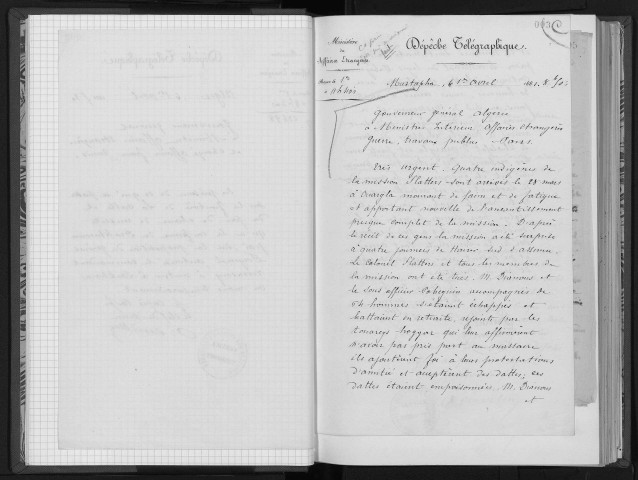 Ministère
des
Affaires Etrangères
Dépêche Télégraphique.
Mustapha, le 1er Avril
Gouverneur général Algérie
à Ministre Intérieur Affaires étrangères
Guerre, travaux publics - Paris.
Très urgent. Quatre indigènes de
la mission Flatters sont arrivés le 28 mars
à Ouargla mourant de faim et de fatigue
et apportant nouvelle de l'anéantissement
presque complet de la mission. D'après
le récit de ces gens la mission a été surprise
à quatre journées de Sud d'Assiou.
Le Colonel Flatters et tous les membres de
la mission ont été tués. M. Dianous et
le sous officier Pobéguin accompagnés de
54 hommes s'étaient échappés et
battaient en retraite, rejoints par les
touaregs hoggar qui leur affirmèrent
n'avoir pas pris part au massacre
ils ajoutèrent foi à leurs protestations
d'amitié et acceptèrent des dattes, ces
dattes étaient empoisonnées. M. Dianous
et